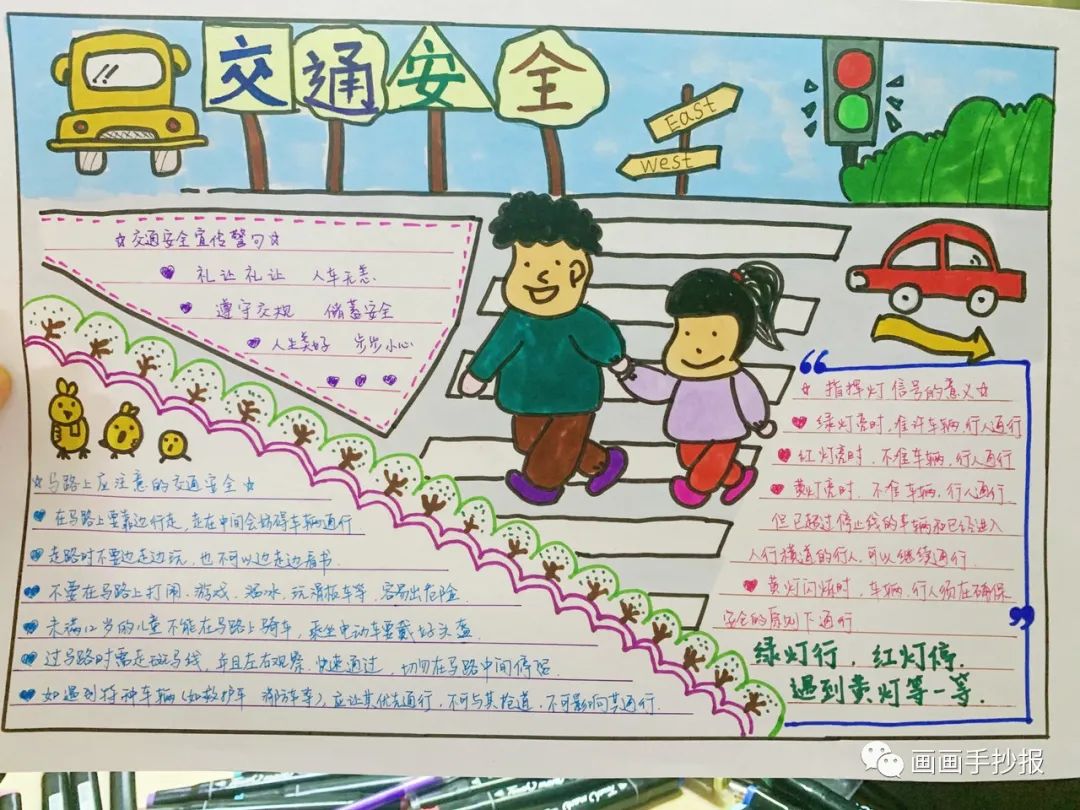 交通安全
East
West
☆交通安全宣传警句☆
礼让礼让 人车无恙
遵守交规 储蓄安全
人生美好 步步小心
☆马路上应注意的交通安全☆
在马路上要靠边行走,走在中间会妨碍车辆通行
走路时不要边走边玩,也不可以边走边看书.
不要在马路上打闹、游戏、泼水、玩滑板车等,容易出危险.
未满12岁的儿童不能在马路上骑车,乘坐电动车要戴好头盔.
过马路时需走斑马线,并且左右观察,快速通过,切勿在马路中间停留.
如遇到特种车辆(如救护车 消防车等)应让其优先通行,不可与其抢道,不可影响其通行.
☆指挥灯信号的意义☆
绿灯亮时,准许车辆,行人通行
红灯亮时,不准车辆,行人通行
黄灯亮时,不准车辆,行人通行.
但已超过停止线的车辆和已经进入
人行横道的行人,可以继续通行.
黄灯闪烁时,车辆,行人须在确保
安全的原则下通行
绿灯行,红灯停.
遇到黄灯等一等.
画画手抄报